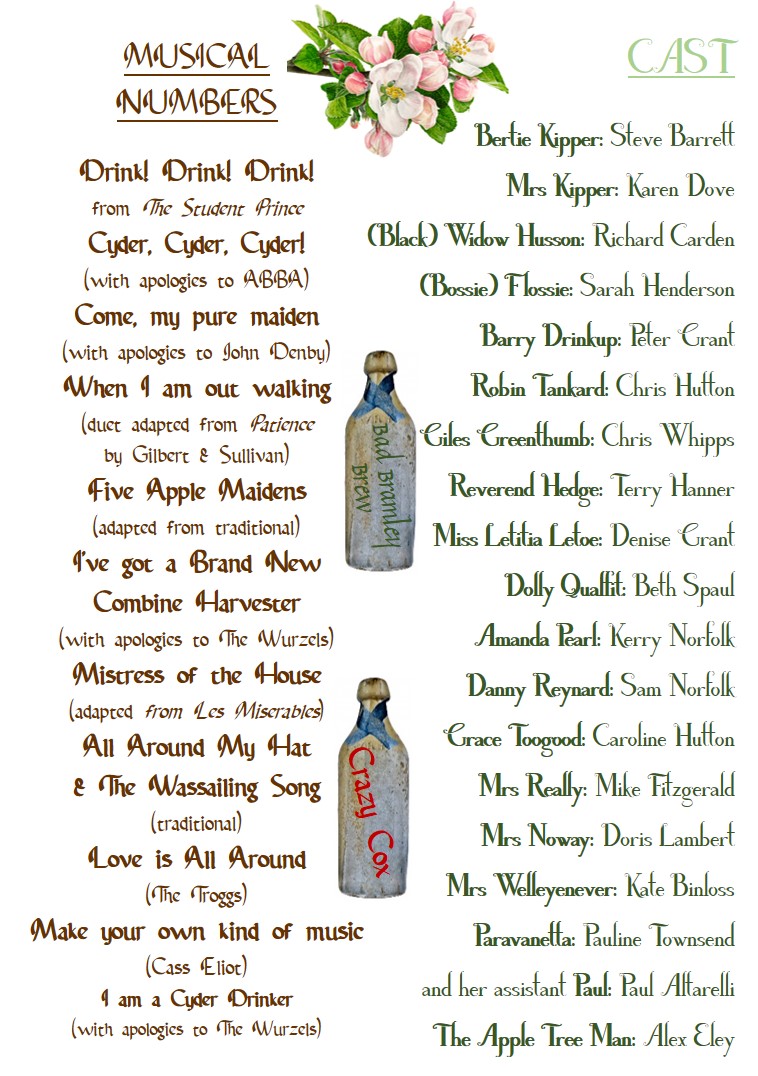 MUSICAL
NUMBERS
Drink! Drink! Drink!
from The Student Prince
Cyder, Cyder, Cyder!
(with apologies to ABBA)
Come, my pure maiden
(with apologies to John Denby)
When I am out walking
(duet adapted from Patience
by Gilbert & Sullivan)
Five Apple Maidens
(adapted from traditional)
I've got a Brand New
Combine Harvester
(with apologies to The Wurzels)
Mistress of the House
(adapted from Les Miserables)
All Around My Hat
& The Wassailing Song
(traditional)
Love is All Around
(The Troggs)
Make your own kind of music
(Cass Eliot)
I am a Cyder Drinker
(with apologies to The Wurzels)
Bad Bramley
Brew
Crazy Cox
CAST
Bertie Kipper: Steve Barrett
Mrs Kipper: Karen Dove
(Black) Widow Husson: Richard Carden
(Bossie) Flossie: Sarah Henderson
Barry Drinkup: Peter Grant
Robin Tankard: Chris Hutton
Giles Greenthumb: Chris Whipps
Reverend Hedge: Terry Hanner
Miss Letitia Letoe: Denise Grant
Dolly Quaffit: Beth Spaul
Amanda Pearl: Kerry Norfolk
Danny Reynard: Sam Norfolk
Grace Toogood: Caroline Hutton
Mrs Really: Mike Fitzgerald
Mrs Noway: Doris Lambert
Mrs Welleyenever: Kate Binloss
Paravanetta: Pauline Townsend
and her assistant Paul: Paul Altarelli
The Apple Tree Man: Alex Eley